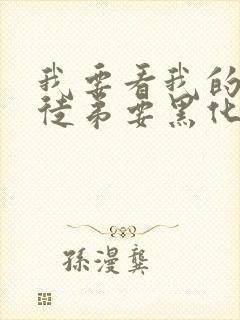 我要看我的
徒弟要黑化
孫漫龔